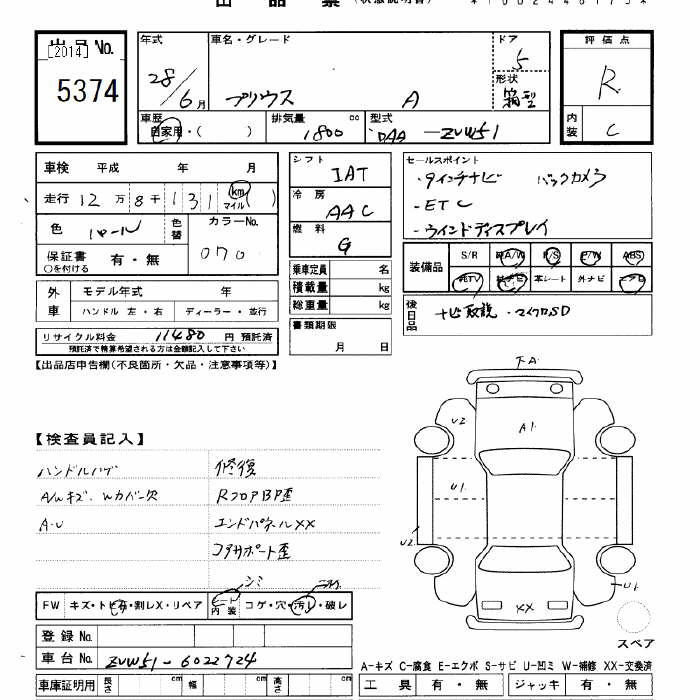 出品票 (状態説明書)
出品No.
[2014]
5374
年式
28/6月
車名・グレード
プリウス A
ドア
5
形状
箱型
評価点
R
内装
C
車歴
自家用・( )
排気量 cc
1800
型式
DAA-ZVW51
車検 平成 年 月
走行 12万8千131 km マイル ( )
色 パール
色替
カラーNo.
070
保証書 有・無
○を付ける
外車
モデル年式 年
ハンドル 左・右 ディーラー・並行
リサイクル料金 11480 円 預託済
預託済で精算希望される方は金額記入して下さい
シフト
IAT
冷房
AAC
燃料
G
乗車定員 名
積載量 kg
総重量 kg
書類期限
月 日
セールスポイント
・9インチナビ バックカメラ
・ETC
・ウインドディスプレイ
装備品
S/R A/W P/S P/W ABS
純TV 純ナビ 革シート 外ナビ エアB
後日品
ナビ取説・マイクロSD
【出品店申告欄(不良箇所・欠品・注意事項等)】
【検査員記入】
A/Wキズ、Wカバー欠
A・U
修復
RフロアBP歪
エンドパネルXX
コアサポート歪
シミ
FW キズ・トビ石・割レX・リペア
シート内装 コゲ・穴・汚レ・破レ
登録No.
車台No. ZVW51-6022724
車庫証明用 長さ cm 幅 cm 高さ cm
F.A.
U2
A1
U1
U2
U1
XX
スペア
A-キズ C-腐食 E-エクボ S-サビ U-凹ミ W-補修 XX-交換済
工具 有・無 ジャッキ 有・無